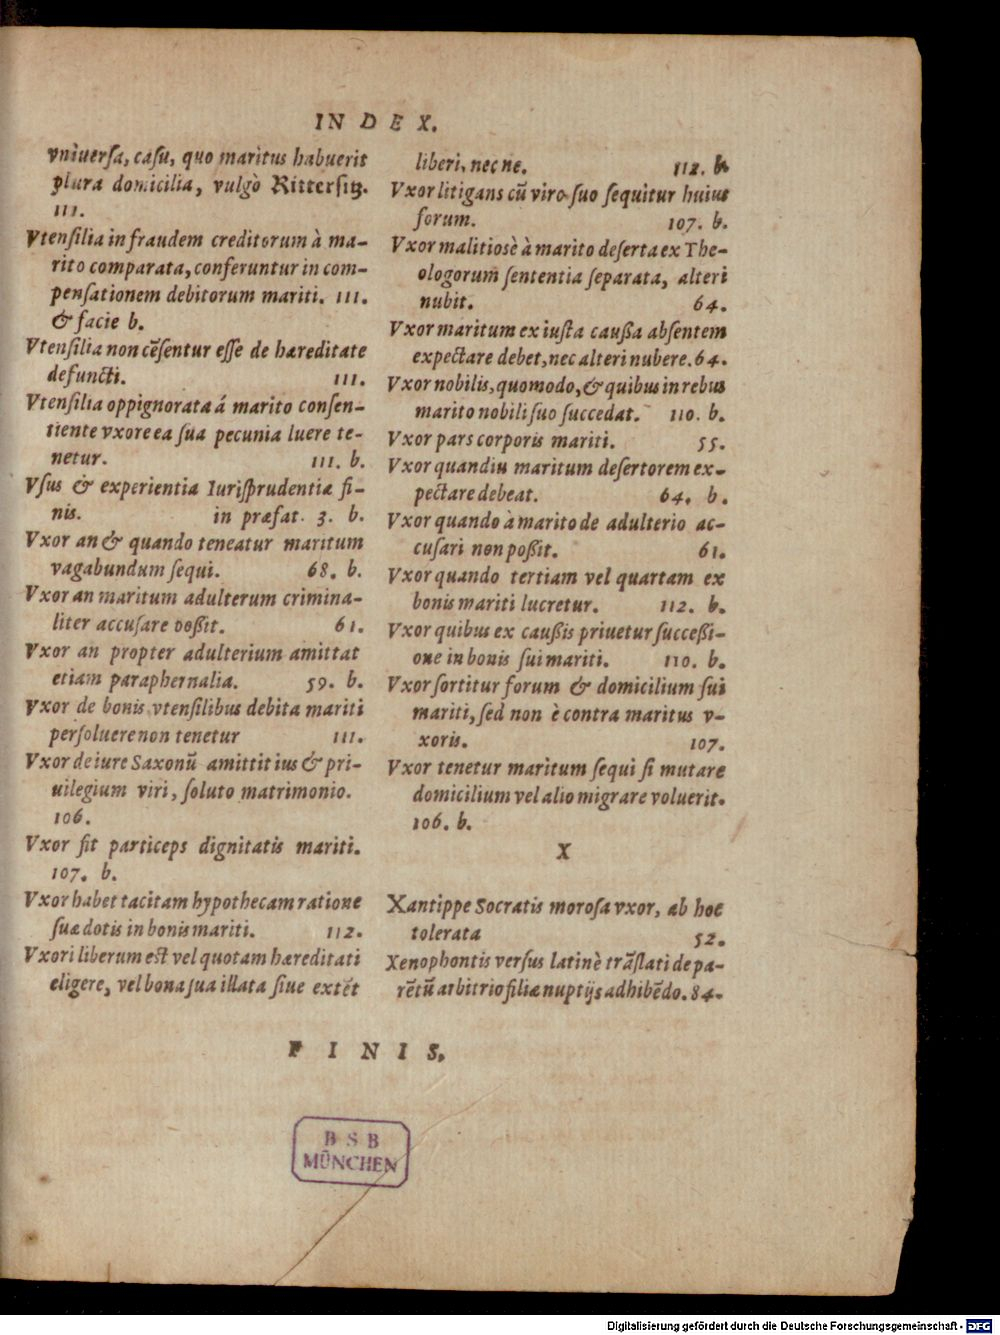 INDEX.
vniuersa, casu, quo maritus habuerit
plura domicilia, vulgò Rittersitz.
111.
Vtensilia in fraudem creditorum à ma-
rito comparata, conferuntur in com-
pensationem debitorum mariti. 111.
& facie b.
Vtensilia non cēsentur esse de hæreditate
defuncti. 111.
Vtensilia oppignorata á marito consen-
tiente vxore ea sua pecunia luere te-
netur. 111. b.
Vsus & experientia Iurisprudentiæ fi-
nis. in præfat. 3. b.
Vxor an & quando teneatur maritum
vagabundum sequi. 68. b.
Vxor an maritum adulterum crimina-
liter accusare possit. 61.
Vxor an propter adulterium amittat
etiam paraphernalia. 59. b.
Vxor de bonis vtensilibus debita mariti
persoluere non tenetur 111.
Vxor de iure Saxonū amittit ius & pri-
uilegium viri, soluto matrimonio.
106.
Vxor fit particeps dignitatis mariti.
107. b.
Vxor habet tacitam hypothecam ratione
suæ dotis in bonis mariti. 112.
Vxori liberum est vel quotam hæreditati
eligere, vel bona sua illata siue extēt
liberi, nec ne. 112. b.
Vxor litigans cū viro suo sequitur huius
forum. 107. b.
Vxor malitiosè à marito deserta ex The-
ologorum sententia separata, alteri
nubit. 64.
Vxor maritum ex iusta caußa absentem
expectare debet, nec alteri nubere. 64.
Vxor nobilis, quomodo, & quibus in rebus
marito nobili suo succedat. 110. b.
Vxor pars corporis mariti. 55.
Vxor quandiu maritum desertorem ex-
pectare debeat. 64. b.
Vxor quando à marito de adulterio ac-
cusari non poßit. 61.
Vxor quando tertiam vel quartam ex
bonis mariti lucretur. 112. b.
Vxor quibus ex caußis priuetur succeßi-
one in bonis sui mariti. 110. b.
Vxor sortitur forum & domicilium sui
mariti, sed non è contra maritus v-
xoris. 107.
Vxor tenetur maritum sequi si mutare
domicilium vel alio migrare voluerit.
106. b.
X
Xantippe Socratis morosa vxor, ab hoc
tolerata 52.
Xenophontis versus latinè trāslati de pa-
rētū arbitrio filiæ nuptijs adhibēdo. 84.
FINIS.
BSB
MÜNCHEN
Digitalisierung gefördert durch die Deutsche Forschungsgemeinschaft - DFG